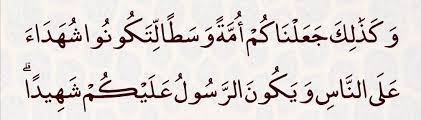 وَكَذَٰلِكَ جَعَلْنَاكُمْ أُمَّةً وَسَطًا لِّتَكُونُوا شُهَدَاءَ
عَلَى النَّاسِ وَيَكُونَ الرَّسُولُ عَلَيْكُمْ شَهِيدًا ۗ